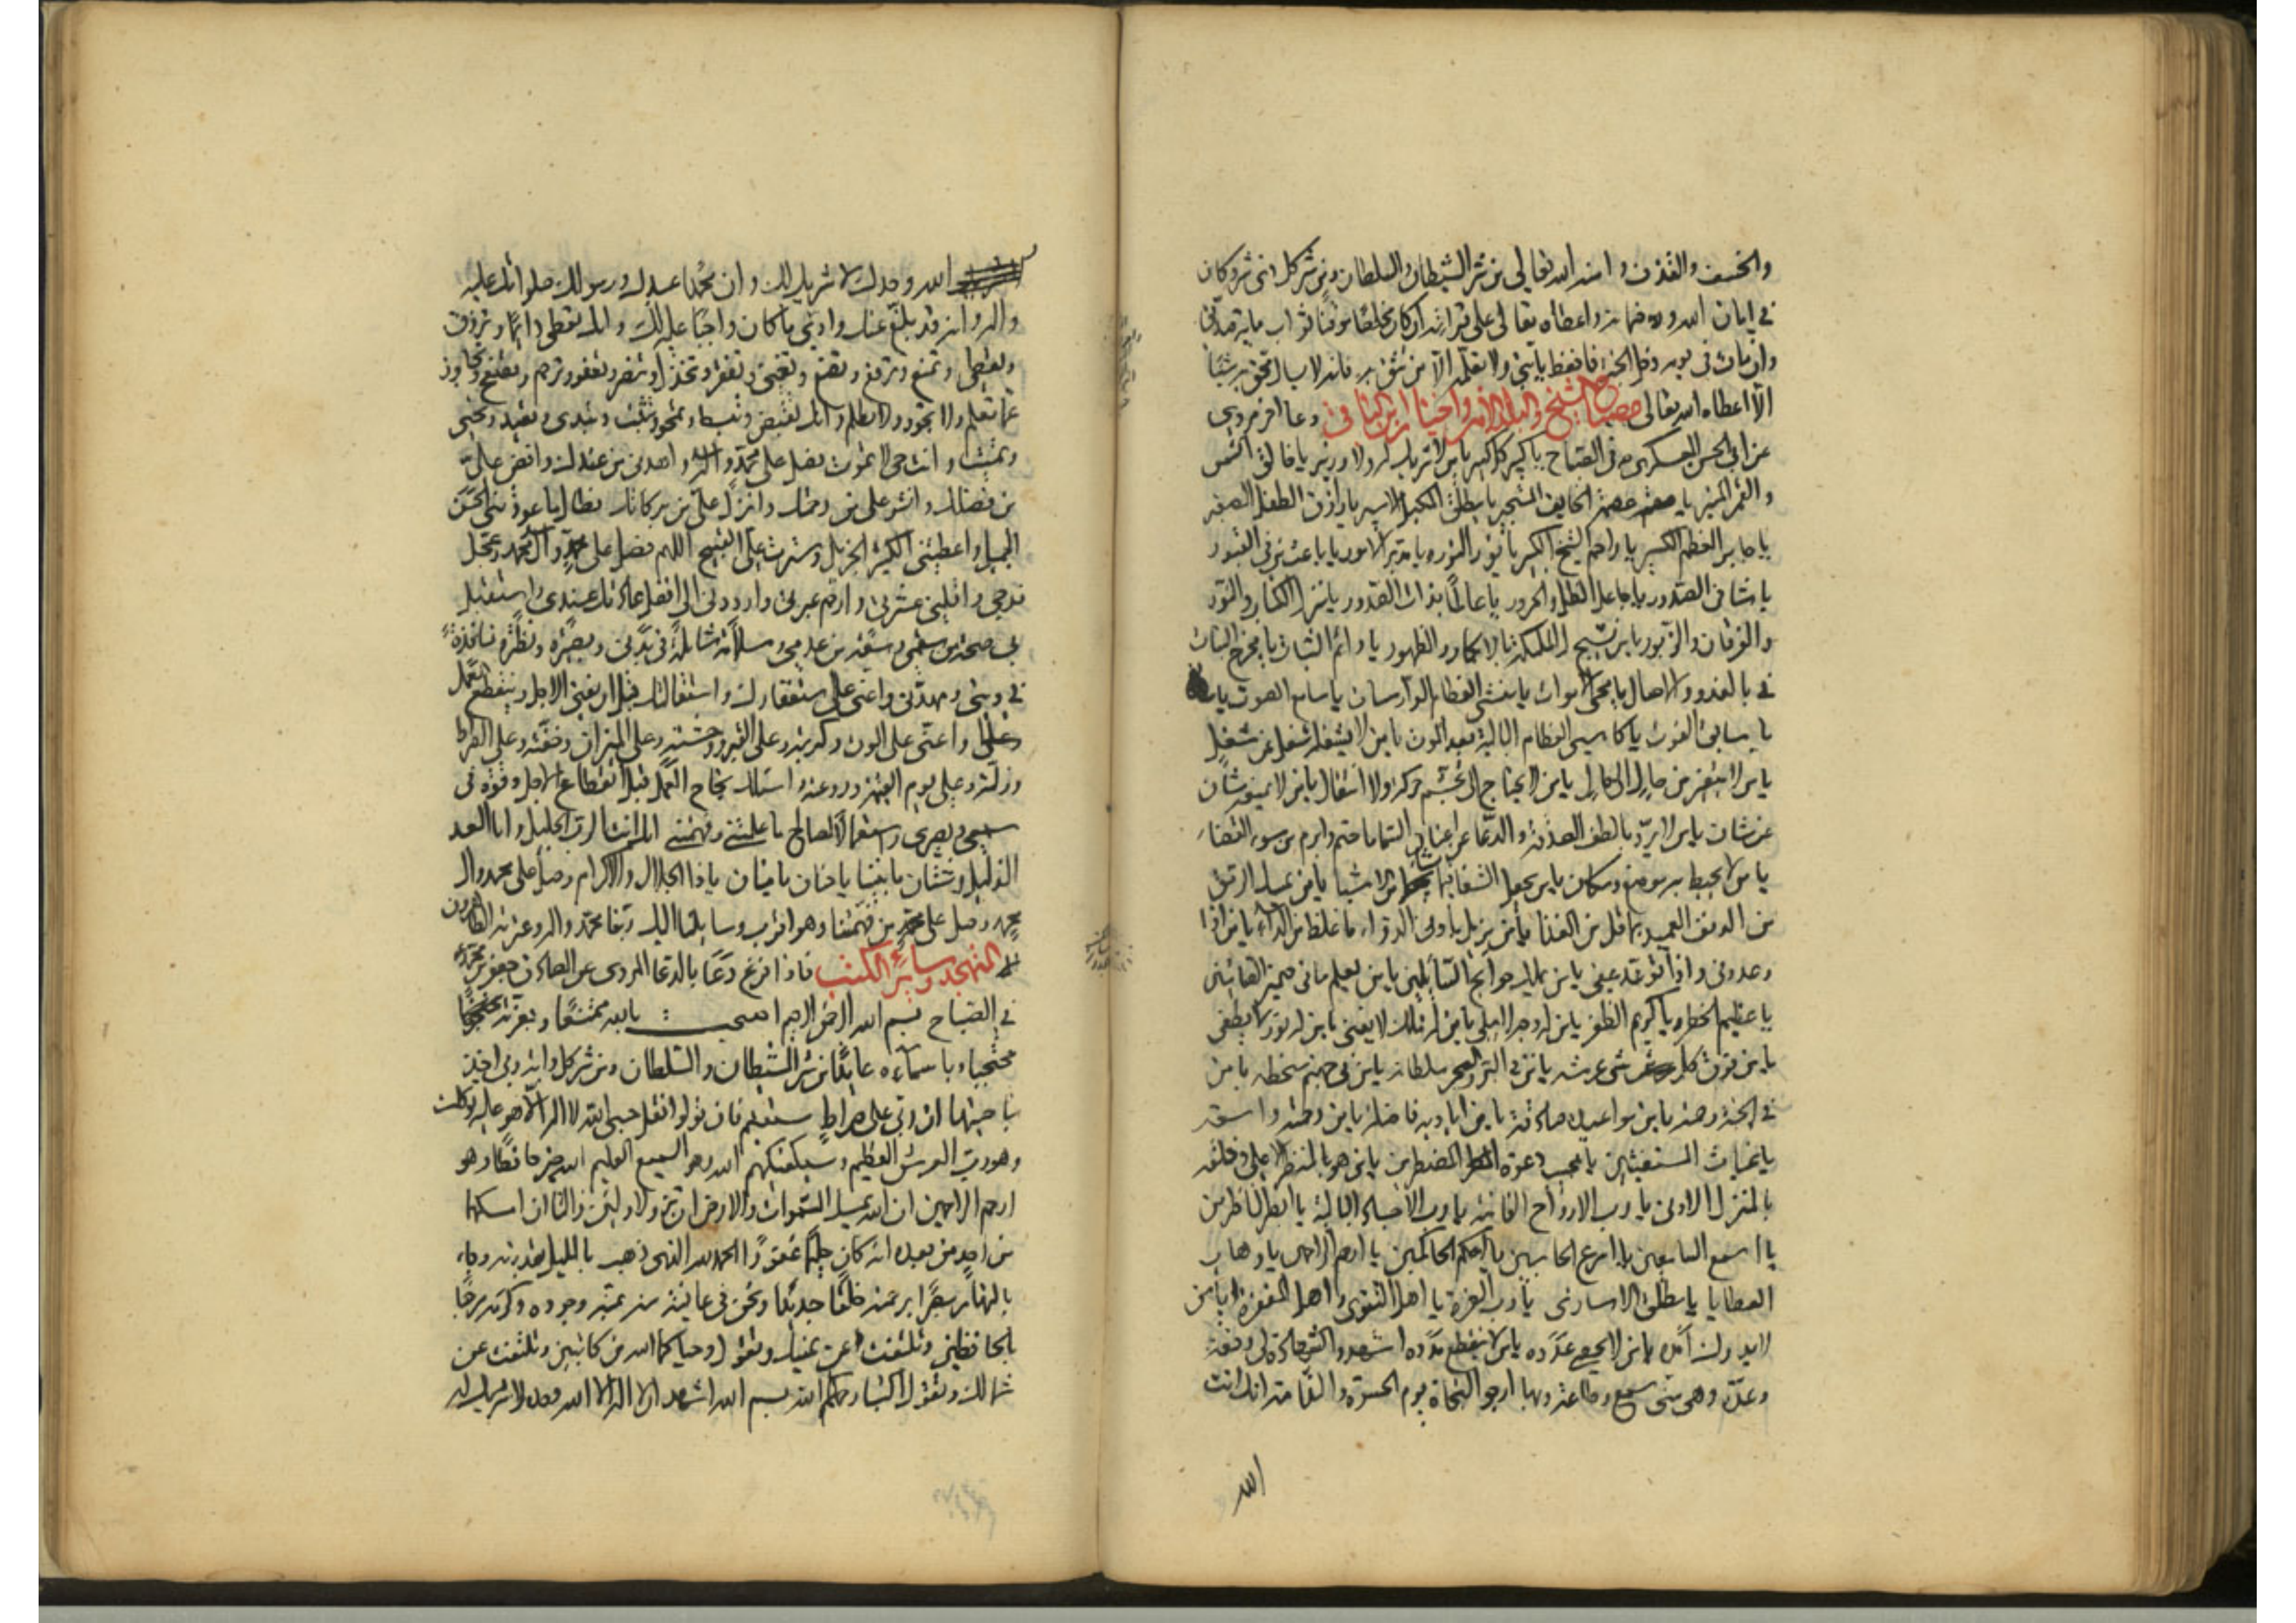 والخسف والقذف وامنه الله تعالى من شر الشيطان والسلطان ومن شر كل ذى شر وكان
فى امان الله و ضمانه واعطاه تعالى على قرائته ان كان مخلصا موقنا ثواب
وان مات فى يومه دخل الجنة فاحفظ يا بنى ولا تعلمه الا من تثق به فانه لا يسال محق به شيئا
الا اعطاه الله تعالى مصباح الشيخ والبلد الامين واختيار ابن الباقى دعا اخر مروى
عن ابى الحسن العسكرى فى الصباح يا كبير كل كبير يا من لا شريك له ولا وزير يا خالق الشمس
والقمر المنير يا عصمة الخايف المستجير يا مطلق المكبل الاسير يا رازق الطفل الصغير
يا جابر العظم الكسير يا راحم الشيخ الكبير يا نور النور يا مدبر الامور يا باعث من فى القبور
يا شافى الصدور يا جاعل الظل والحرور يا عالما بذات الصدور يا منزل الكتاب والنور
والفرقان والزبور يا من تسبح له الملئكة بالابكار والظهور يا دائم الثبات يا مخرج النبات
فى بالغدو والاصال يا محى الاموات يا منشى العظام الدارسات يا سامع الصوت
يا سابق الفوت يا كاسى العظام البالية بعد الموت يا من لا يشغله شغل عن شغل
يا من لا يتغير من حال الى حال يا من لا يحتاج الى تجشم حركة ولا انتقال يا من لا يمنعه شان
عن شان يا من يرد بالطف الصدقة والدعا عن اعنان السما ما حتم وابرم من سوء القضاء
يا من لا يحيط به موضع ومكان يا من يجعل الشفا فيما يشا من الاشيا يا من يمسك الرمق
من الدنف العميد بما قل من الغذا يا من يزيل بادنى الدواء ما غلظ من الداء يا من اذا
وعد وفى واذا توعد عفى يا من يملك حوائج السائلين يا من يعلم ما فى ضمير الصامتين
يا عظيم الخطر يا كريم الظفر يا من له وجه لا يبلى يا من له ملك لا يفنى يا من له نور لا يطفى
يا من فوق كل شى عرشه يا من فى البر والبحر سلطانه يا من فى جهنم سخطه يا من
فى الجنة رحمته يا من مواعيده صادقة يا من اياديه فاضلة يا من رحمته واسعة
يا غياث المستغيثين يا مجيب دعوة المضطرين يا من هو بالمنظر الاعلى وخلقه
بالمنزل الادنى يا رب الارواح الفانية يا رب الاجساد البالية يا ابصر الناظرين
يا اسمع السامعين يا اسرع الحاسبين يا احكم الحاكمين يا ارحم الراحمين يا وهاب
العطايا يا مطلق الاسارى يا رب العزة يا اهل التقوى واهل المغفرة يا من
لا يدرك امده يا من لا يحصى عدده يا من لا ينقطع مدده اشهد والشهادة لى رفعة
وعدة وهى منى سمع وطاعة وبها ارجو النجاة يوم الحسرة والندامة انك انت
الله
الله وحدك لا شريك لك وان محمدا عبدك ورسولك صلواتك عليه
واله وانه قد بلغ عنك وادى ما كان واجبا عليه لك وانك تعطى دائما وترزق
وتعطى وتمنع وترفع وتضع وتغنى وتفقر وتخذل وتنصر وتعفو وترحم وتصفح وتجاوز
عما تعلم ولا تجور ولا تظلم وانك تقبض وتبسط وتمحو وتثبت وتبدى وتعيد وتحيى
وتميت وانت حى لا تموت فصل على محمد واله واهدنى من عندك وافض على
من فضلك وانشر على من رحمتك وانزل على من بركاتك فطال ما عودتنى الحسن
الجميل واعطيتنى الكثير الجزيل وسترت على القبيح اللهم فصل على محمد وال محمد وعجل
فرجى واقلنى عثرتى وارحم عبرتى وارددنى الى افضل عادتك عندى واستقبل
بى صحة من سقمى وسعة من عدمى وسلامة شاملة فى بدنى وبصيرة ونظرة نافذة
فى دينى ومهدنى واعنى على استغفارك واستقالتك قبل ان يفنى الاجل وينقطع العمل
واعنى على الموت وكربته وعلى القبر ووحشته وعلى الميزان وخفته وعلى الصراط
وزلته وعلى يوم القيمة وروعته واسئلك نجاح العمل قبل انقطاع الاجل وقوة فى
سمعى وبصرى واستعمالا لصالح ما علمتنى وفهمتنى انك انت الرب الجليل وانا العبد
الذليل وشتان ما بيننا يا حنان يا منان يا ذا الجلال والاكرام وصل على محمد وال
محمد وصل على محمد من فهمتنا وهو اقرب وسائلنا اليك ربنا محمد واله وعترته الطاهرون
التهجد وساير الكتب فاذا فرغ دعا بالدعا المروى عن الصادق جعفر بن محمد
فى الصباح بسم الله الرحمن الرحيم اصبحت بالله ممتنعا وبعزته
محتجبا وباسمائه عائذا من شر الشيطان والسلطان ومن شر كل دابة ربى اخذ
بناصيتها ان ربى على صراط مستقيم فان تولوا فقل حسبى الله لا اله الا هو عليه توكلت
وهو رب العرش العظيم فسيكفيكهم الله وهو السميع العليم الله خير حافظا وهو
ارحم الراحمين ان الله يمسك السموات والارض ان تزولا ولئن زالتا ان امسكهما
من احد من بعده انه كان حليما غفورا الحمد لله الذى ذهب بالليل بقدرته وجاء
بالنهار مبصرا برحمته خلقا جديدا ونحن فى عافية منه بمنه وجوده وكرمه مرحبا
بالحافظين وتلتفت عن يمينك وتقول وحياكما الله من كاتبين وتلتفت عن
شمالك وتقول اكتبا رحمكما الله بسم الله اشهد ان لا اله الا الله وحده لا شريك له